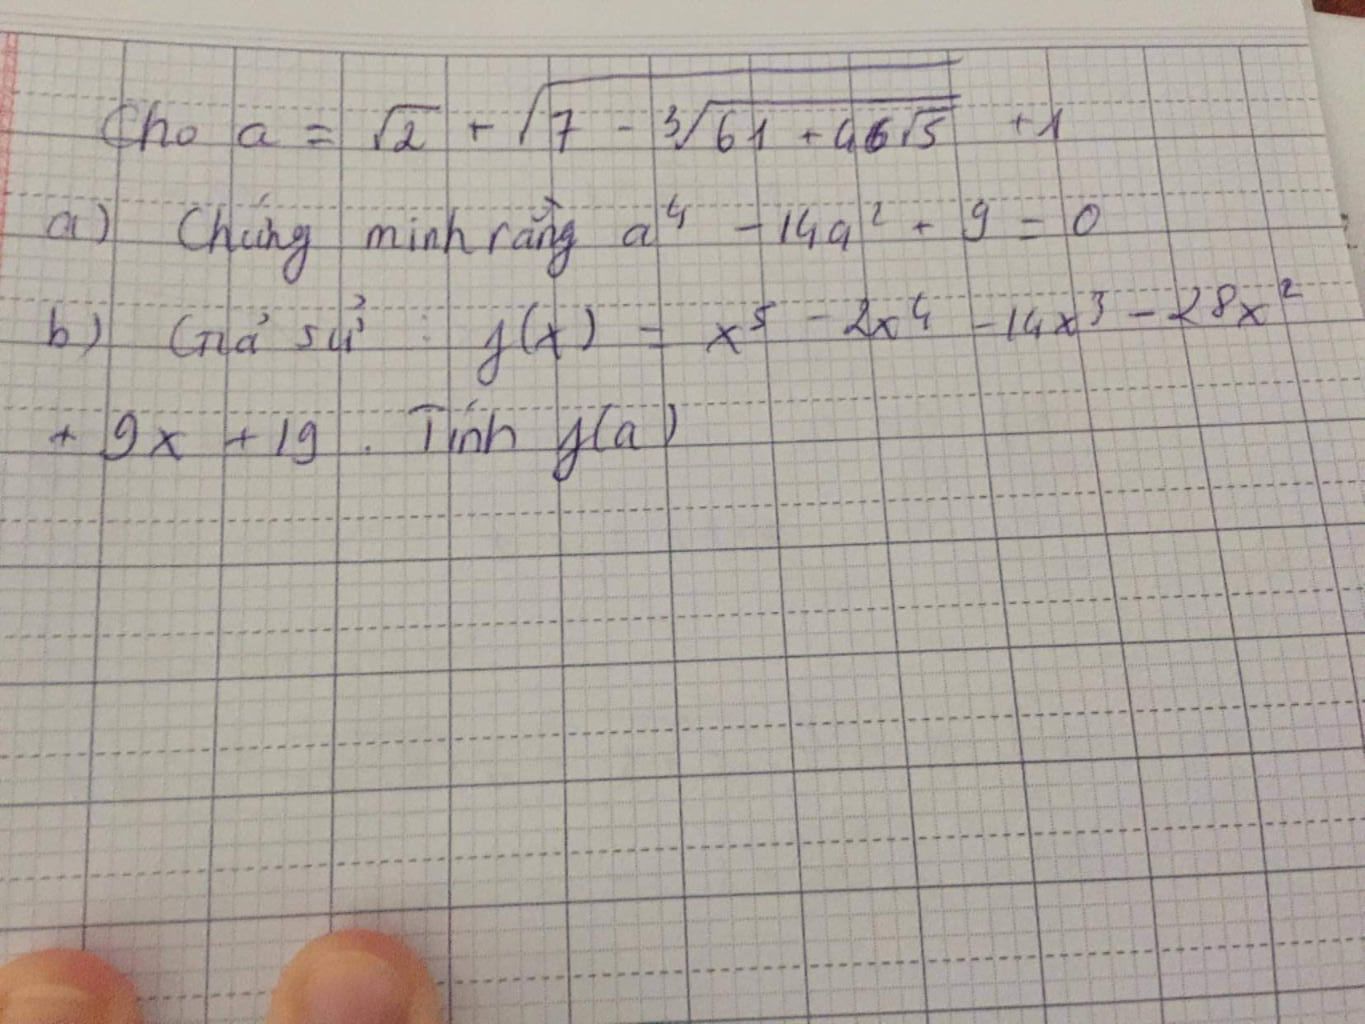 Cho a = √2 + √(7 - ∛(61 + 46√5)) + 1
a) Chứng minh rằng a⁴ - 14a² + 9 = 0
b) Giả sử : f(x) = x⁵ - 2x⁴ - 14x³ - 28x²
+ 9x + 19 . Tính f(a)